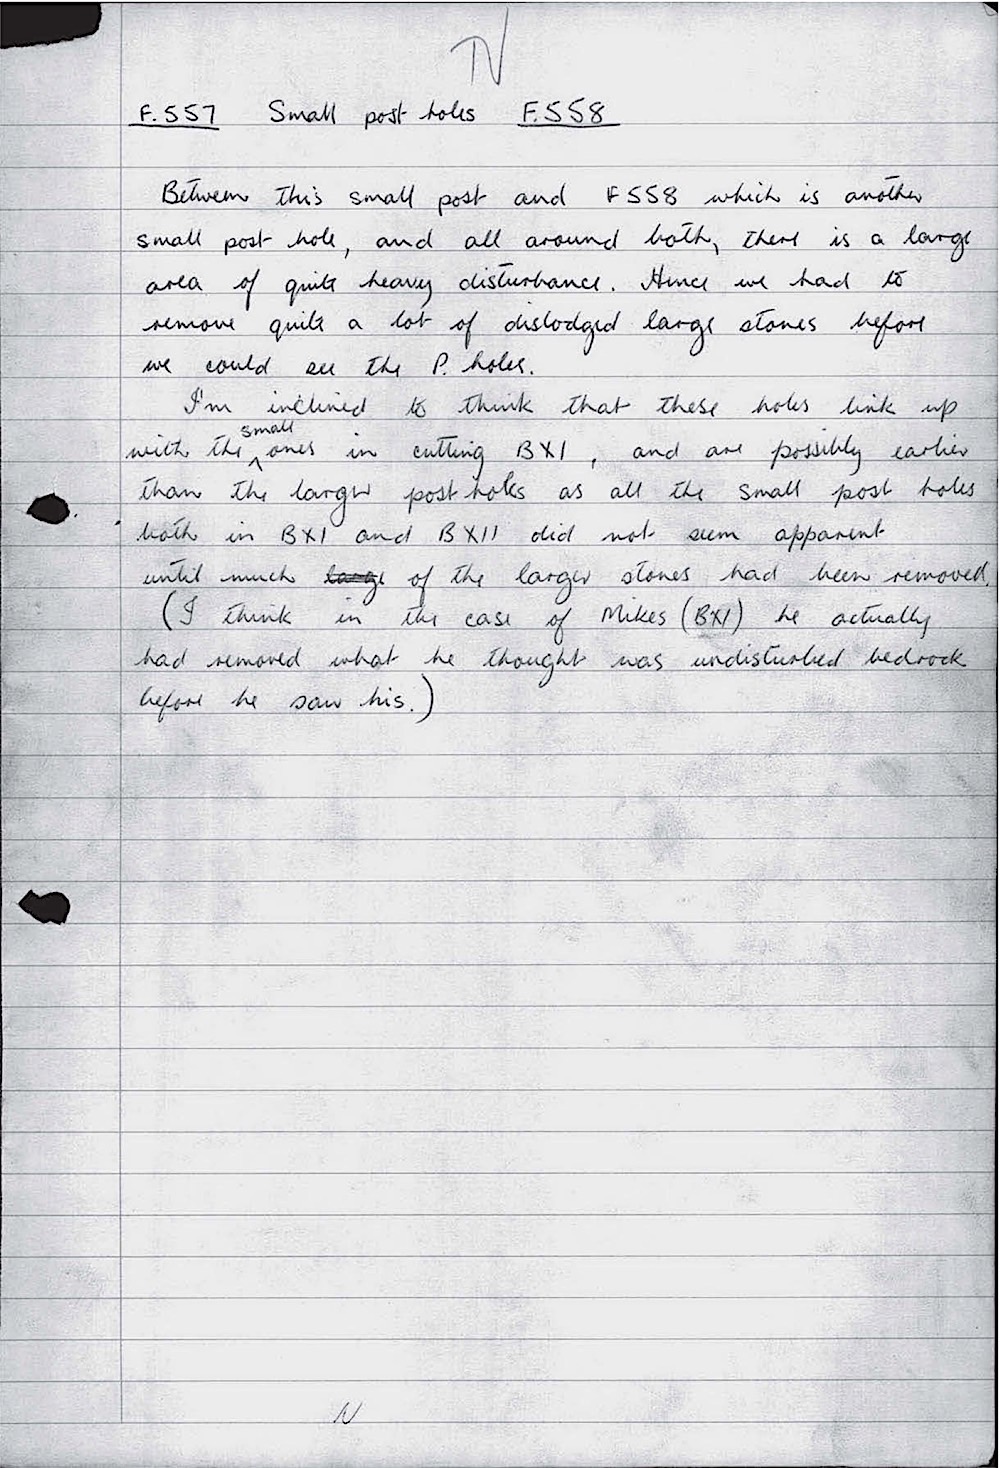 F.557 Small post holes F.558
Between this small post and F558 which is another
small post hole, and all around both, there is a large
area of quite heavy disturbance. Hence we had to
remove quite a lot of dislodged large stones before
we could see the P. holes.
I'm inclined to think that these holes link up
with the small ones in cutting BXI, and are possibly earlier
than the larger post holes as all the small post holes
both in BXI and BXII did not seem apparent
until much large of the larger stones had been removed.
(I think in the case of Mikes (BXI) he actually
had removed what he thought was undisturbed bedrock
before he saw his.)
N